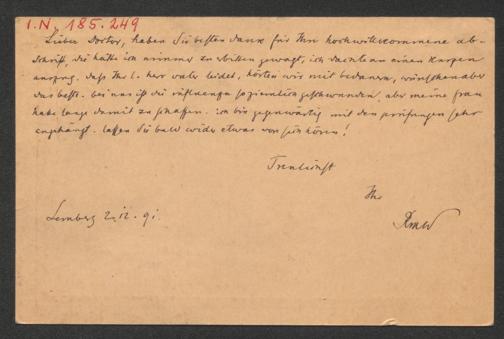 I.N. 185.249
Lieber Doctor, haben Sie besten dank für Ihre hochwillkommene ab-
schrift, die hätte ich nimmer zu erbitten gewagt, ich dachte an einen kurzen
auszug. daß Ihr l. herr vater leidet, hörten wir mit bedauern, wünschen aber
das beste. bei uns ist die influenza so ziemlich geschwunden, aber meine frau
habe lange damit zu schaffen. ich bin gegenwärtig mit den prüfungen sehr
angehängt. lassen Sie bald wider etwas von sich hören!
Treulichst
Ihr
Lemberg 2. 12. 91.